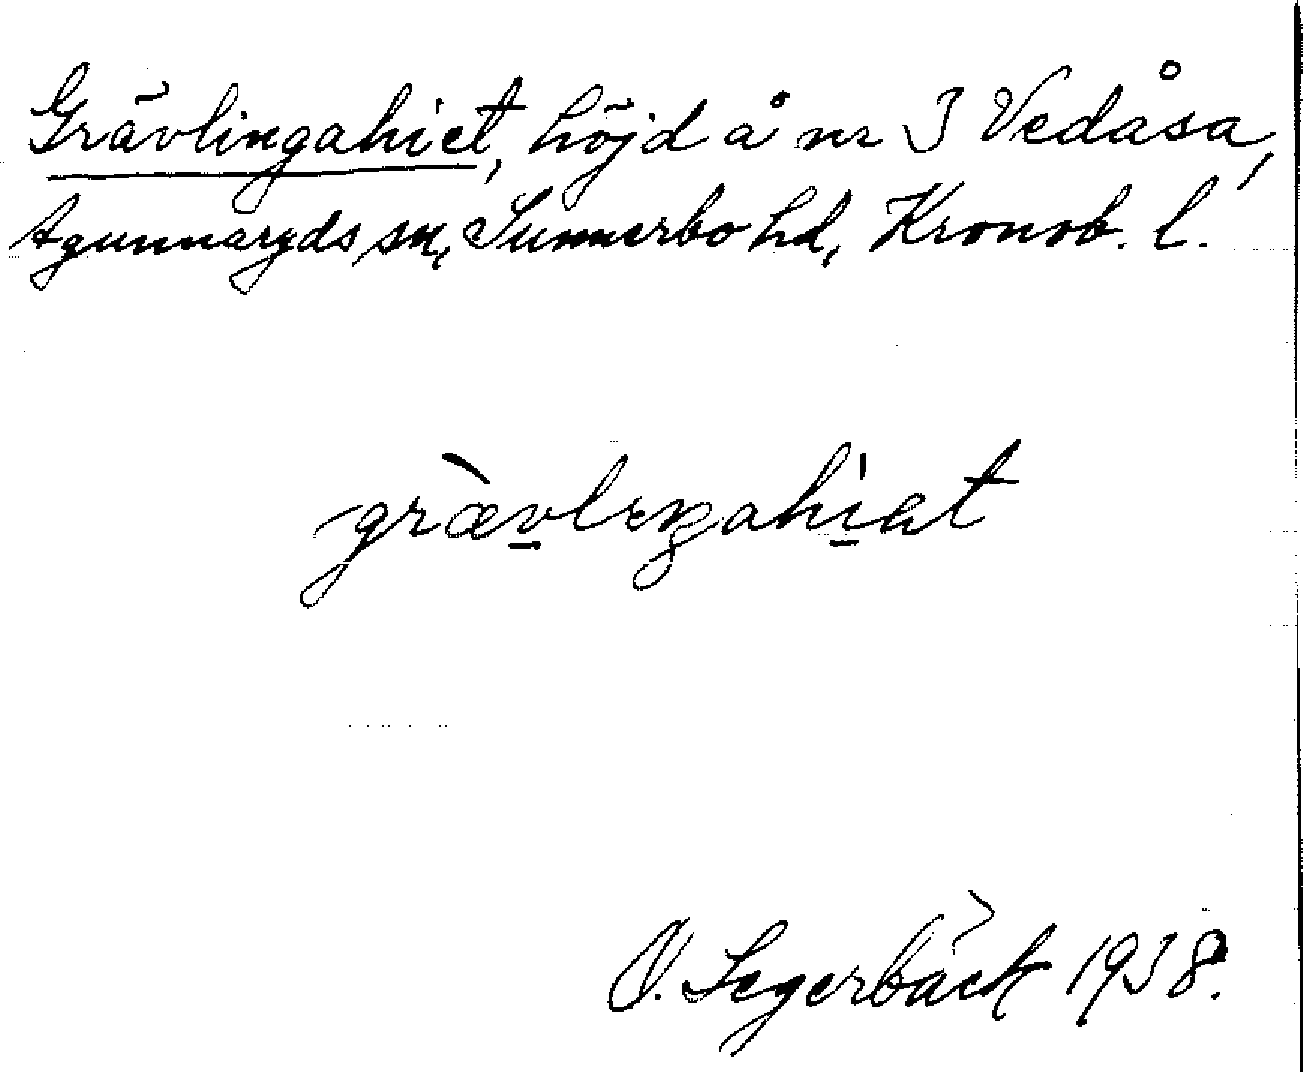 Grävlingahiet, höjd å nr 3 Vedåsa,
Agunnaryds sn, Sunnerbo hd, Kronob. l.
græ̀vleŋahiət
V. Segerbäck 1938.